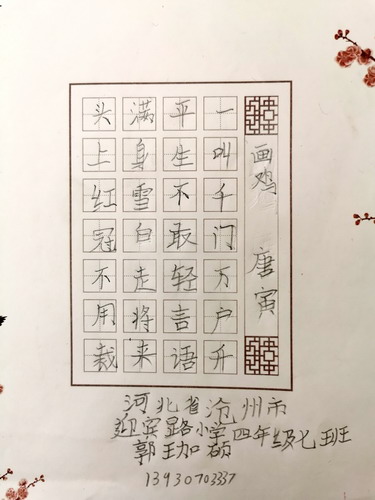 画鸡 唐寅
头上红冠不用裁
满身雪白走将来
平生不敢轻言语
一叫千门万户开
河北省沧州市
迎宾路小学四年级七班
郭珈硕
13930703337